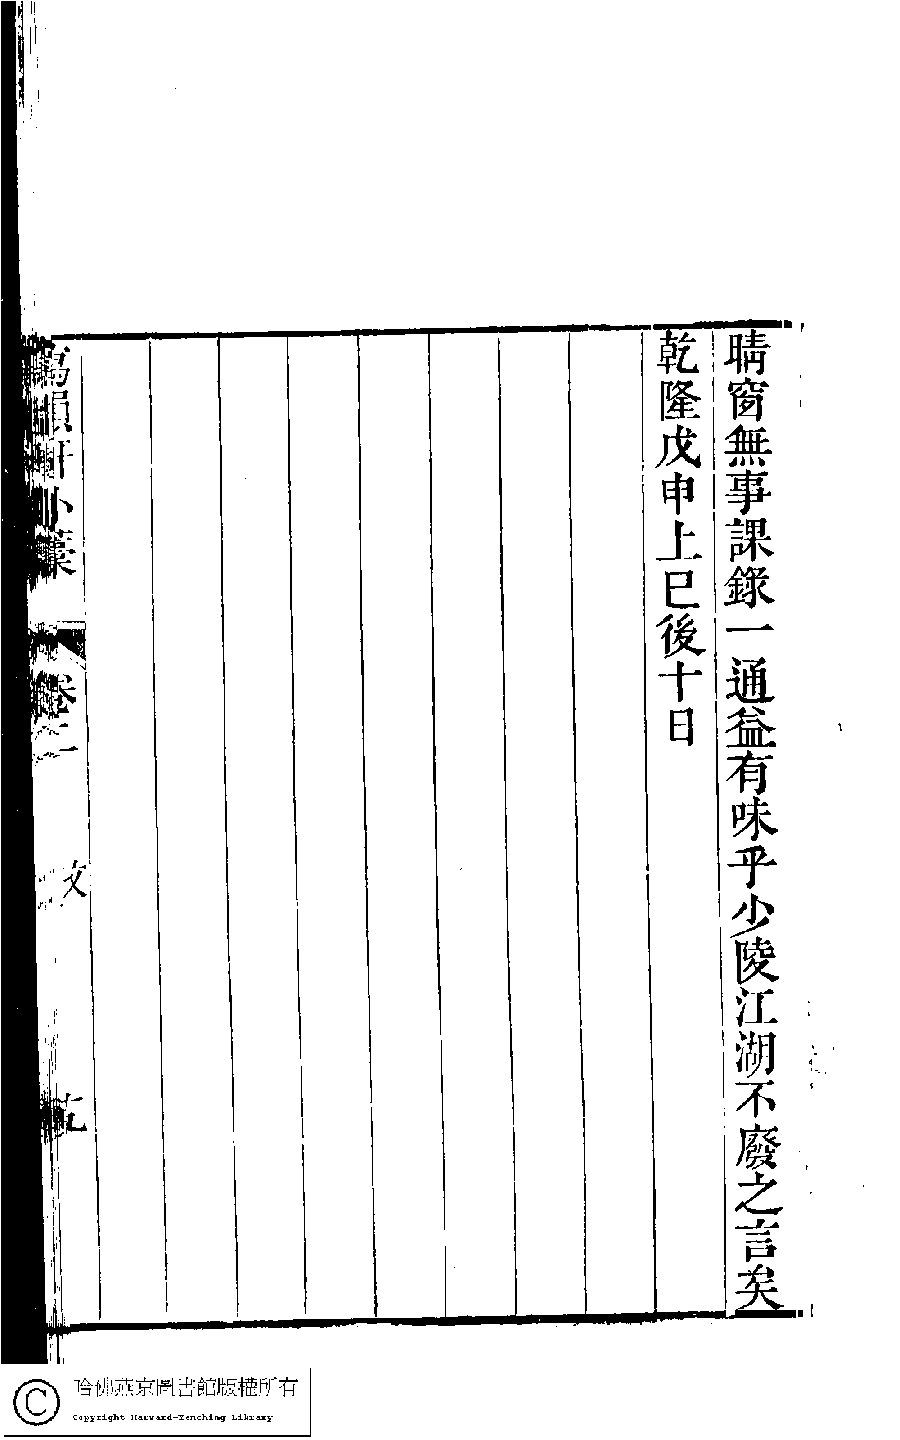 晴窗無事課錄一通益有味乎少陵江湖不廢之言矣
乾隆戊申上巳後十日
韻軒小藁
卷二
文
哈佛燕京圖書館版權所有
Copyright Harvard-Yenching Library